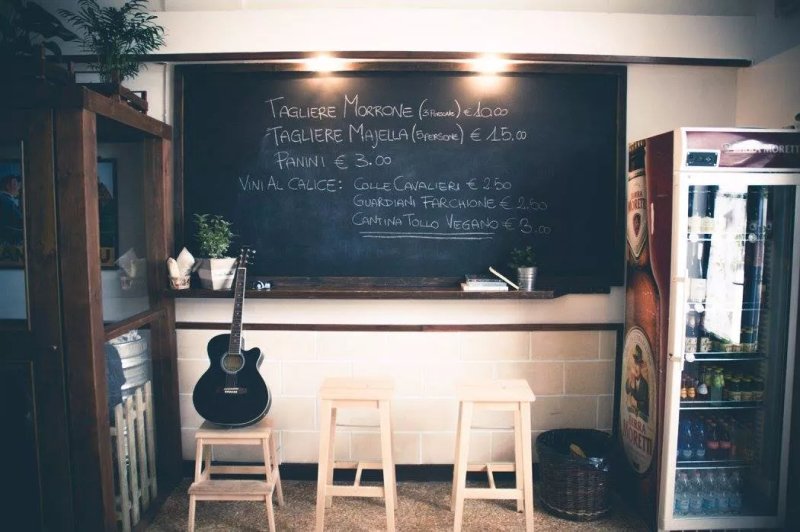 TAGLIERE MORRONE (3 PERSONE) € 10.00
TAGLIERE MAJELLA (5 PERSONE) € 15.00
PANINI € 3.00
VINI AL CALICE: COLLE CAVALIERI € 2.50
GUARDIANI FARCHIONE € 2.50
CANTINA TOLLO VEGANO € 3.00
BIRRA MORETTI
BIRRA MORETTI